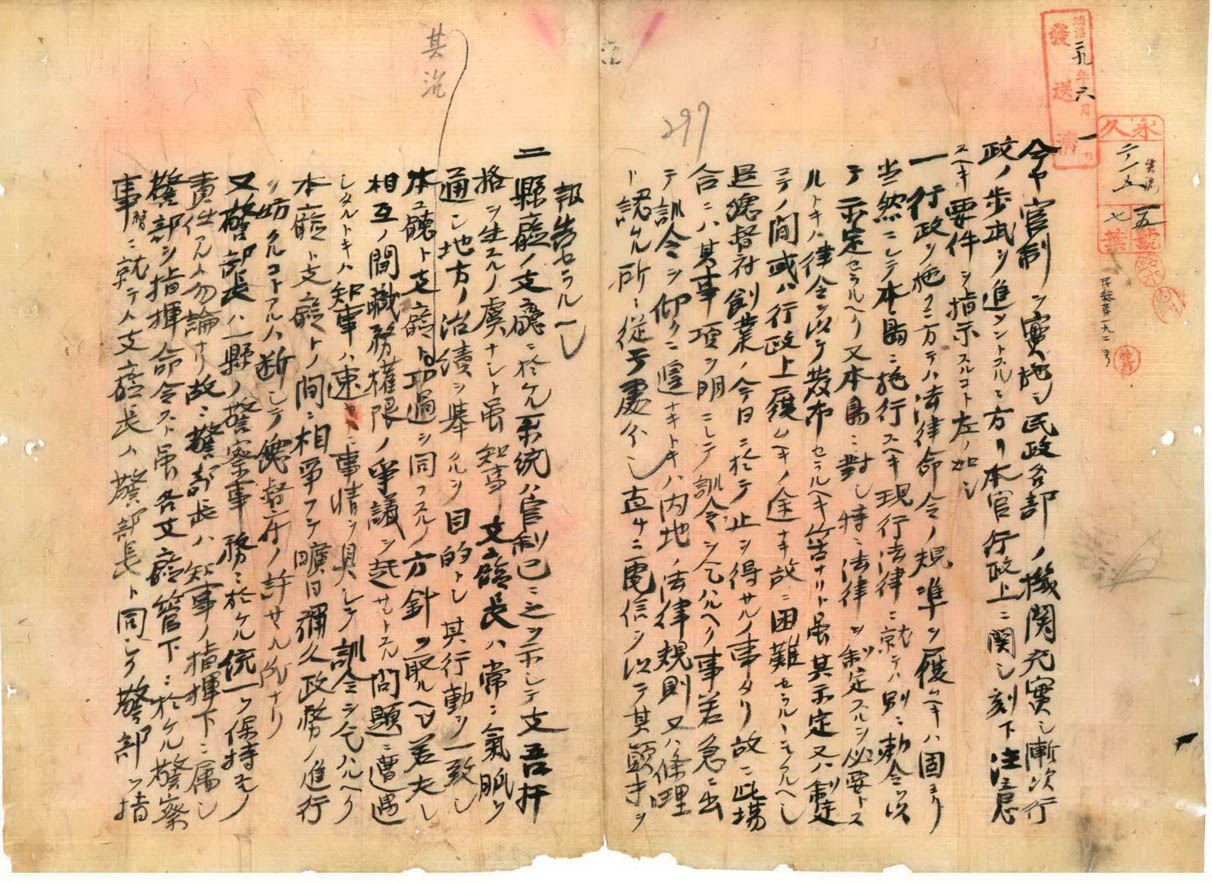 明治廿九年六月一日
發送濟
永久
一五號
七葉
297
今ヤ官制ヲ實施シ民政各部ノ機関充實シ漸次行
政ノ歩武ヲ進メントスルニ方リ本官行政上ニ関シ刻下注意
スヘキ要件ヲ指示スルコト左ノ如シ
一行政ヲ施クニ方テハ法律命令ノ規準ヲ履ムヘキハ固ヨリ
当然ニシテ本島ニ施行スヘキ現行法律ニ就テハ別ニ勅令ヲ以
テ示定セラルヘク又本島ニ對シ特ニ法律ヲ制定スルヲ必要トス
ルトキハ律令ヲ以テ發布セラルヘキ筈ナリト虽其示定又ハ制定
ノ間或ハ行政上履ムヘキノ途ナキ故ニ困難セラルヽ
總督府創業ノ今日ニ於テ止ヲ得サルノ事タリ故ニ此場
合ニハ其事項ヲ明ニシテ訓令ヲ乞ハルヘク事若急ニ出
テ訓令ヲ仰クニ遑ナキトキハ内地ノ法律規則又ハ條理
ト認ムル所ニ従テ處分シ直チニ電信ヲ以テ其顛末ヲ
報告セラルヘシ
二縣廳ノ支廳ニ於ケル系統ハ官制已ニ之ヲ示シテ支吾扞
格ヲ生スルノ虞ナシト虽知事支廳長ハ常ニ氣脈ヲ
通シ地方ノ治績ヲ擧クルヲ目的トシ其行動ヲ一致シ
本廳ト支廳ト功過ヲ同フスルノ方針ヲ取ルヘシ若夫レ
相互ノ間職務権限ノ爭議ヲ起サントスル問題ニ遭遇
シタルトキハ知事ハ速ニ事情ヲ具シテ訓令ヲ乞ハルヘク
本廳ト支廳トノ間ニ相爭フテ曠日彌久政務ノ進行
ヲ妨クルコトアルハ断シテ總督府ノ許サル所ナリ
又警部長ハ一縣ノ警察事務ニ於ケル統一ヲ保持スルノ
責任アルハ勿論ナリ故ニ警部長ハ知事ノ指揮下ニ屬シ
警部ヲ指揮命令スト虽各支廳管下ニ於ケル警察
事務ニ就テハ支廳長ハ警部長ト同シク警部ヲ指